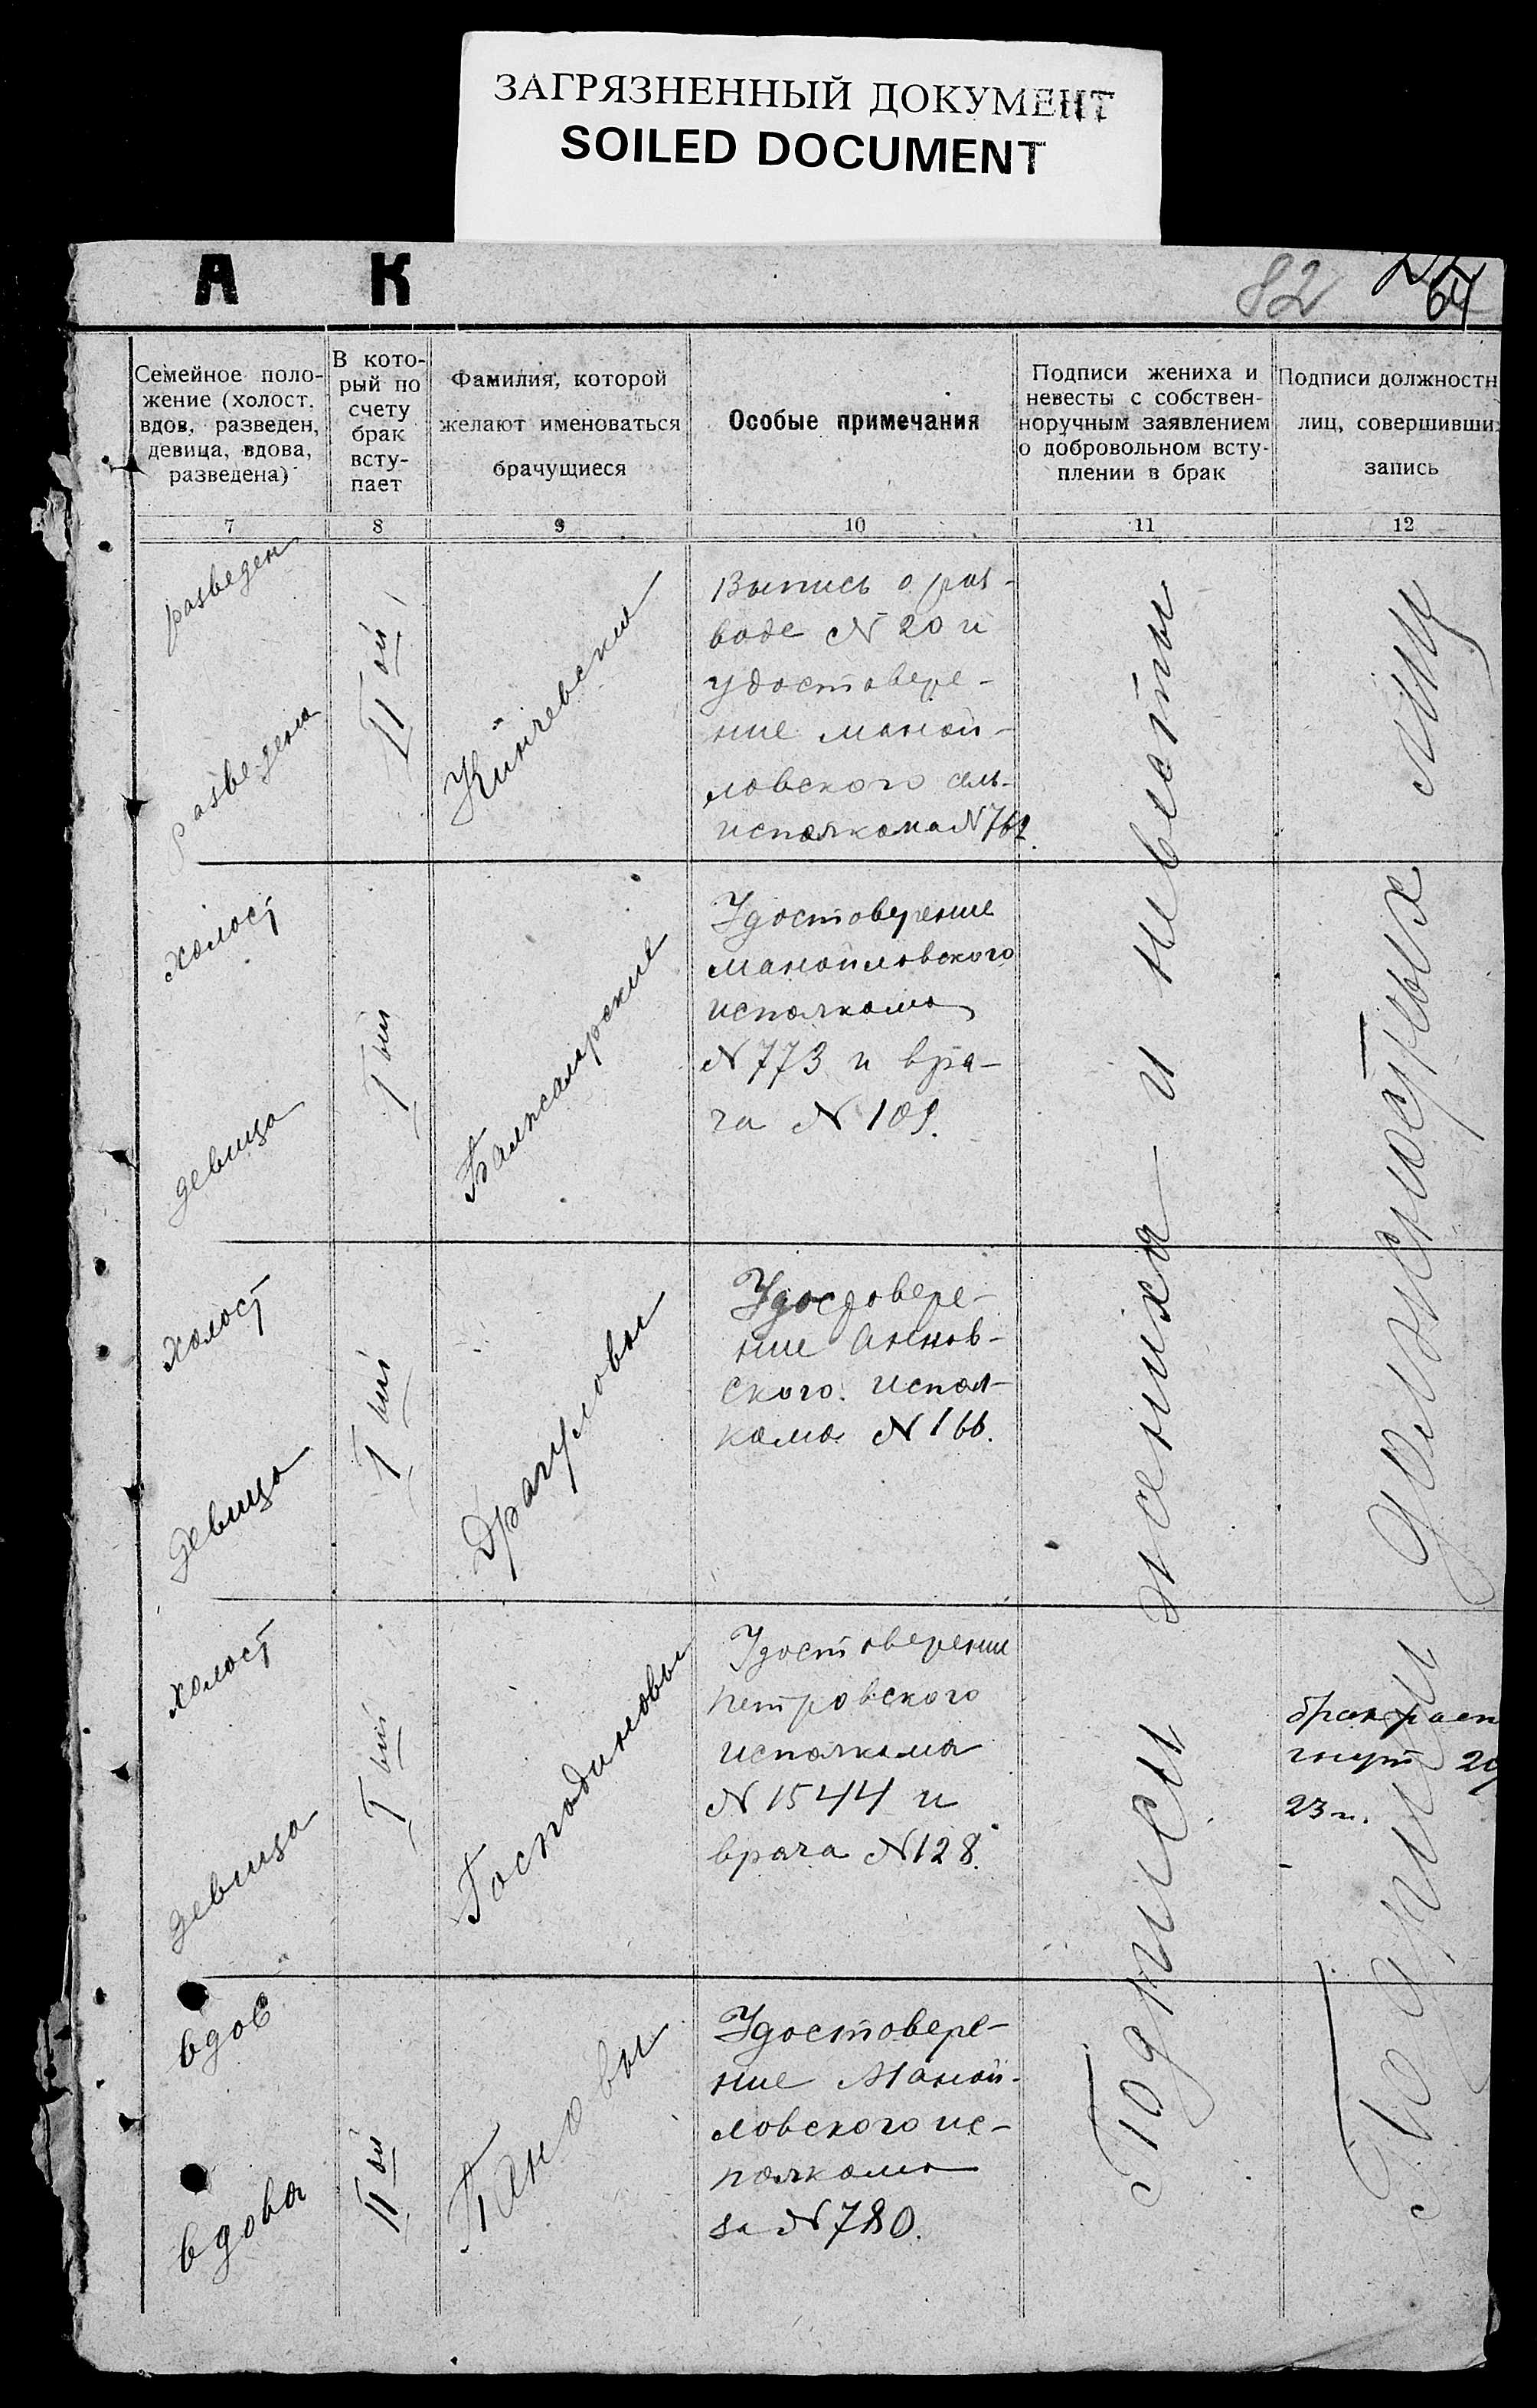 ЗАГРЯЗНЕННЫЙ ДОКУМЕНТ
SOILED DOCUMENT
А К
82
64
Семейное поло-
жение (холост,
вдов, разведен,
девица, вдова,
разведена)
В кото-
рый по
счету
брак
всту-
пает
Фамилия, которой
желают именоваться
брачущиеся
Особые примечания
Подписи жениха и
невесты с собствен-
норучным заявлением
о добровольном всту-
плении в брак
Подписи должностн
лиц, совершивши
запись
7 8 9 10 11 12
разведен
разведена
II ой
Выпись о раз-
воде N 20 и
удостовере-
ние маной-
ловского сель-
исполкома N 762.
холост
девица
I ый
Удостоверение
манойловского
исполкома
N 773 и вра-
ча N 109.
холост
девица
I ый
Драгуловы
Удостовере-
ние Аннов-
ского испол-
кома N 166.
холост
девица
I ый
Господиновы
Удостоверение
петровского
исполкома
N 1544 и
врача N 128.
вдов
вдова
II ой
Пановы
Удостовере-
ние Маной-
ловского ис-
полкома
за N 780.
Подписи жениха и невесты
Подписи должностных лиц
брак раст
гнут 29
23 г.